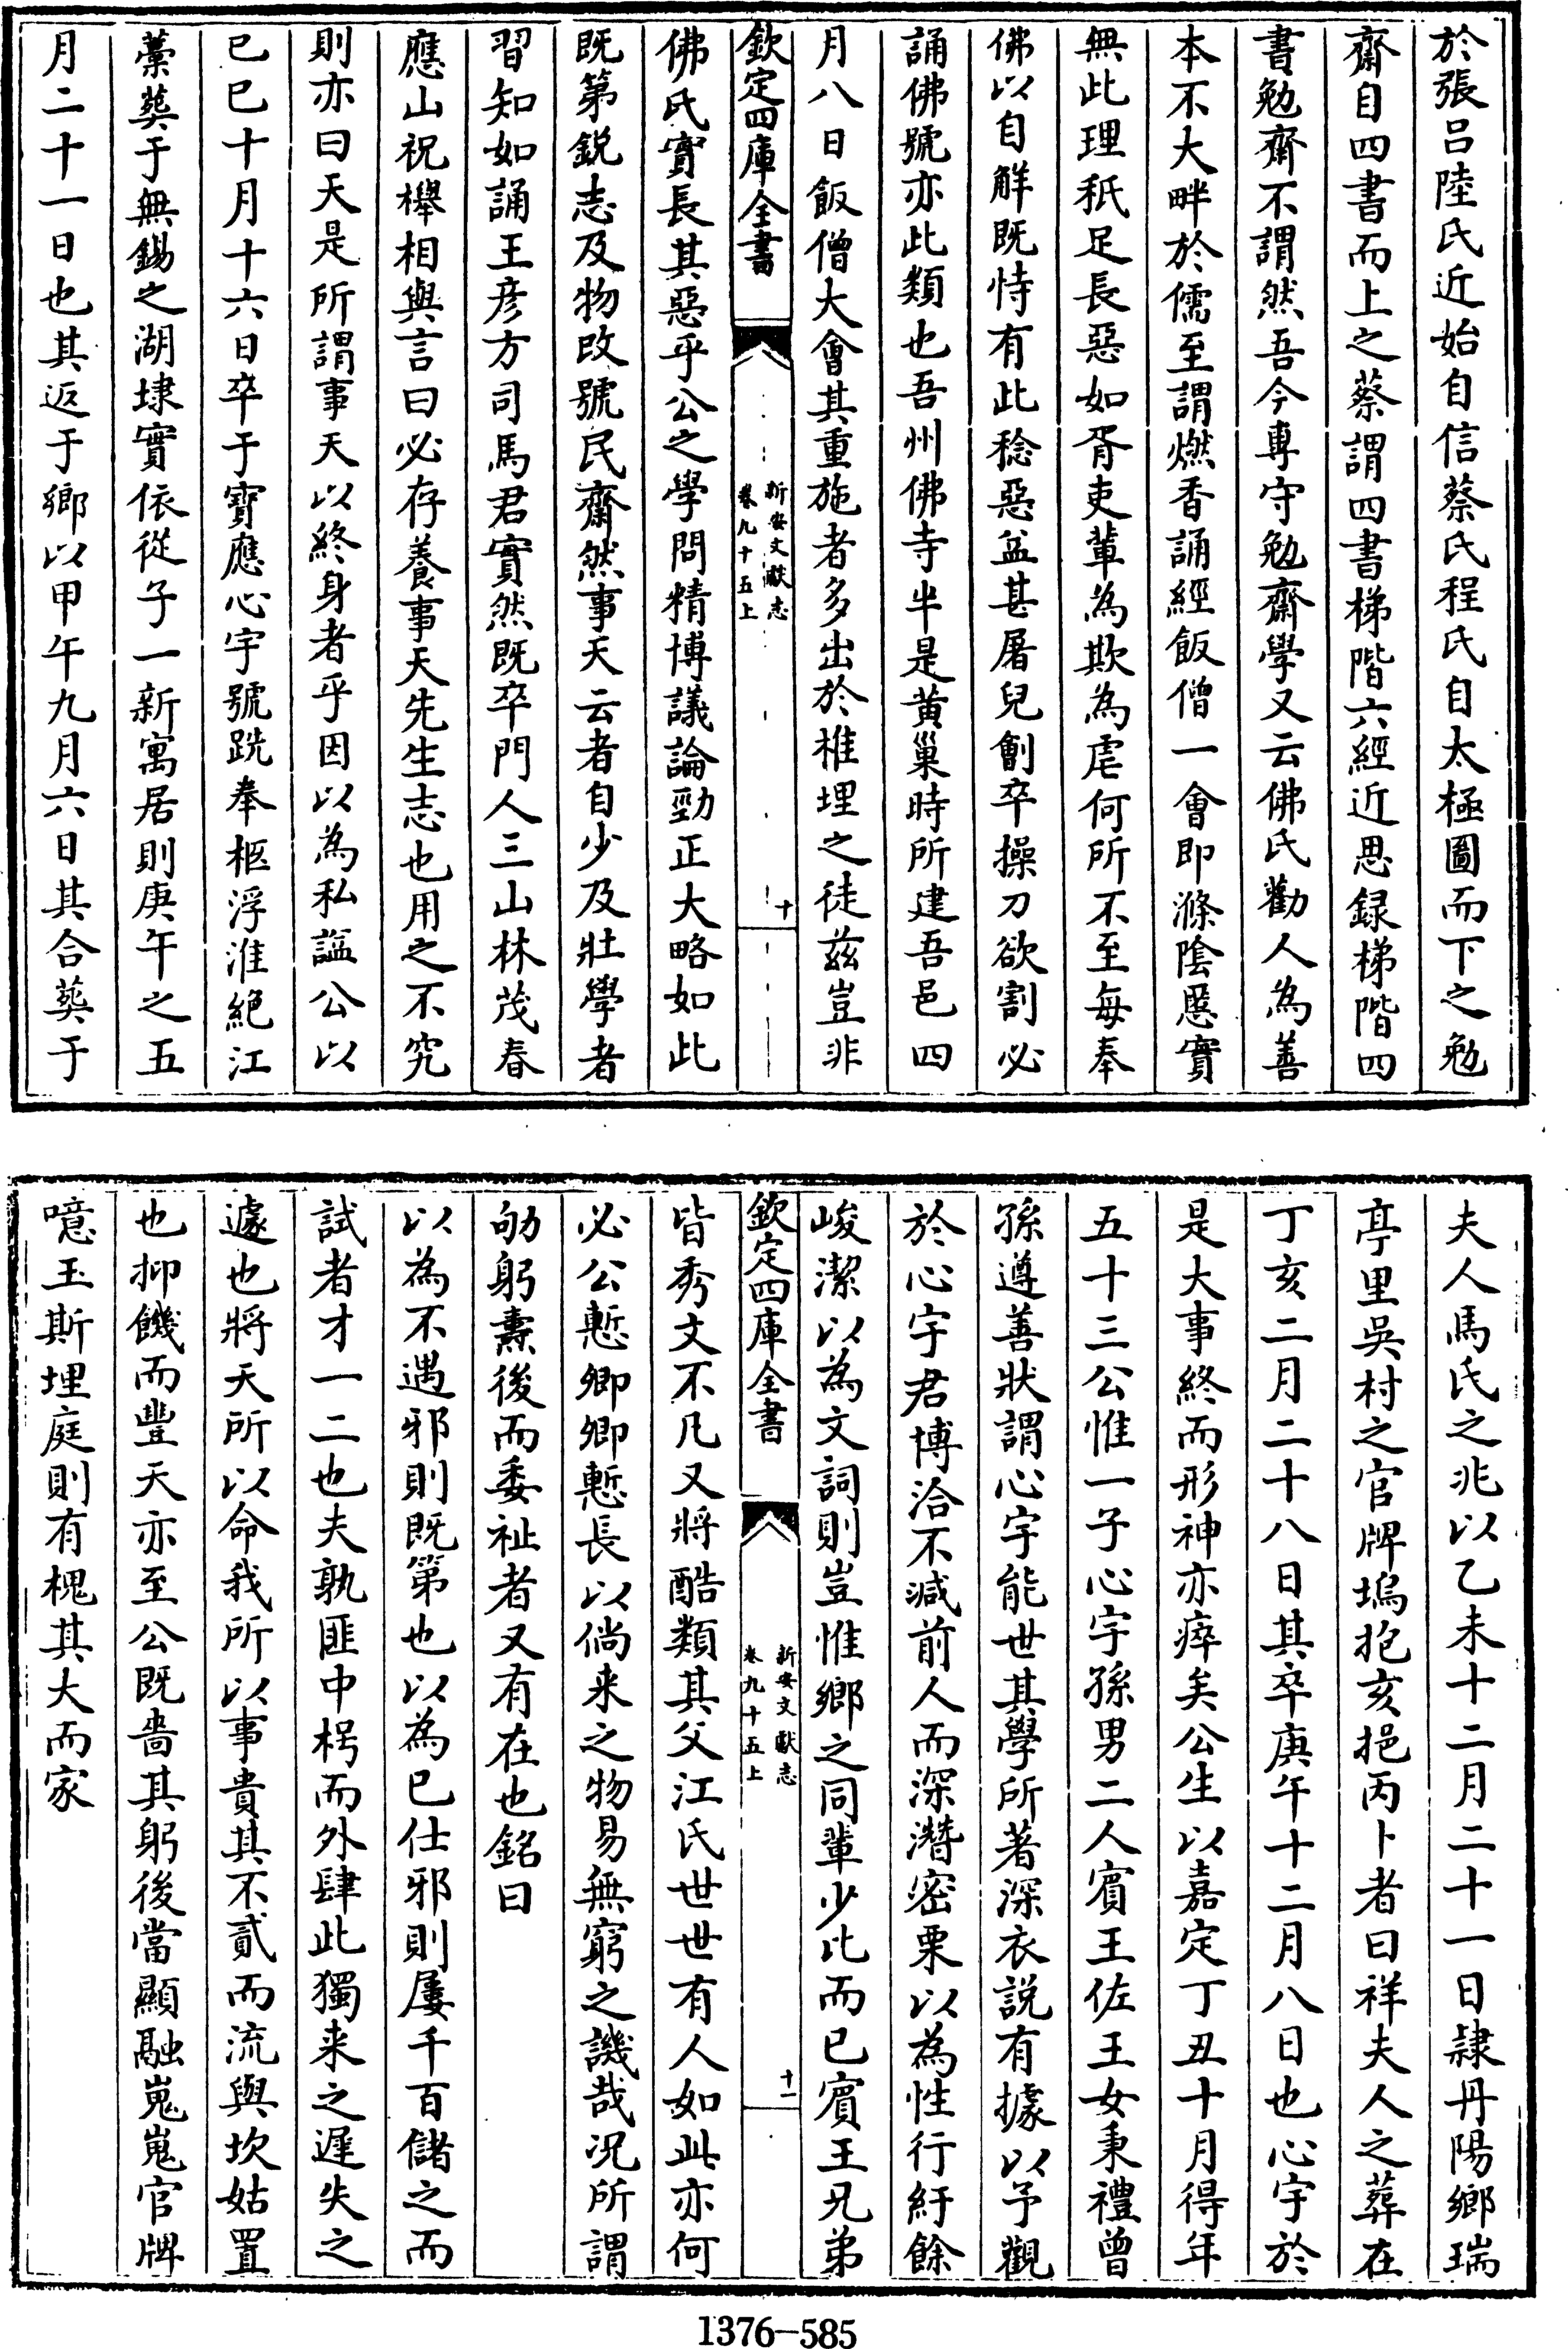 於張吕陸氏近始自信蔡氏程氏自太極圖而下之勉
齋自四書而上之蔡謂四書梯階六經近思録梯階四
書勉齋不謂然吾今専守勉齋學又云佛氏勸人為善
本不大畔於儒至謂燃香誦經飯僧一會即滌陰慝實
無此理秖足長惡如胥吏輩為欺為虐何所不至每奉
佛以自解既恃有此稔惡益甚屠兒劊卒操刀欲割必
誦佛號亦此類也吾州佛寺半是黄巢時所建吾邑四
月八日飯僧大會其重施者多出於椎埋之徒兹豈非
欽定四庫全書
新安文獻志
卷九十五上
十
佛氏實長其惡乎公之學問精博議論勁正大略如此
既第鋭志及物改號民齋然事天云者自少及壯學者
習知如誦王彦方司馬君實然既卒門人三山林茂春
應山祝櫸相與言曰必存養事天先生志也用之不究
則亦曰天是所謂事天以終身者乎因以為私諡公以
己巳十月十六日卒于寳應心宇號跣奉柩浮淮絶江
藁葬于無錫之湖埭實依從子一新寓居則庚午之五
月二十一日也其返于鄉以甲午九月六日其合葬于
夫人馬氏之兆以乙未十二月二十一日隷丹陽鄉瑞
亭里吳村之官牌塢抱亥挹丙卜者曰祥夫人之葬在
丁亥二月二十八日其卒庚午十二月八日也心宇於
是大事終而形神亦瘁矣公生以嘉定丁丑十月得年
五十三公惟一子心宇孫男二人賓王佐王女秉禮曾
孫遵善狀謂心宇能世其學所著深衣説有據以予觀
於心宇君博洽不減前人而深濳密栗以為性行紆餘
峻潔以為文詞則豈惟鄉之同輩少比而已賓王兄弟
欽定四庫全書
新安文獻志
卷九十五上
十一
皆秀文不凡又將酷類其父江氏世世有人如此亦何
必公慙卿卿慙長以倘来之物易無窮之譏哉况所謂
劬躬燾後而委祉者又有在也銘曰
以為不遇邪則既第也以為已仕邪則屢千百儲之而
試者才一二也夫孰匪中枵而外肆此獨来之遲失之
遽也將天所以命我所以事貴其不貳而流與坎姑置
也抑饑而豐天亦至公既嗇其躬後當顯融嵬嵬官牌
噫玉斯埋庭則有槐其大而家
1376-585